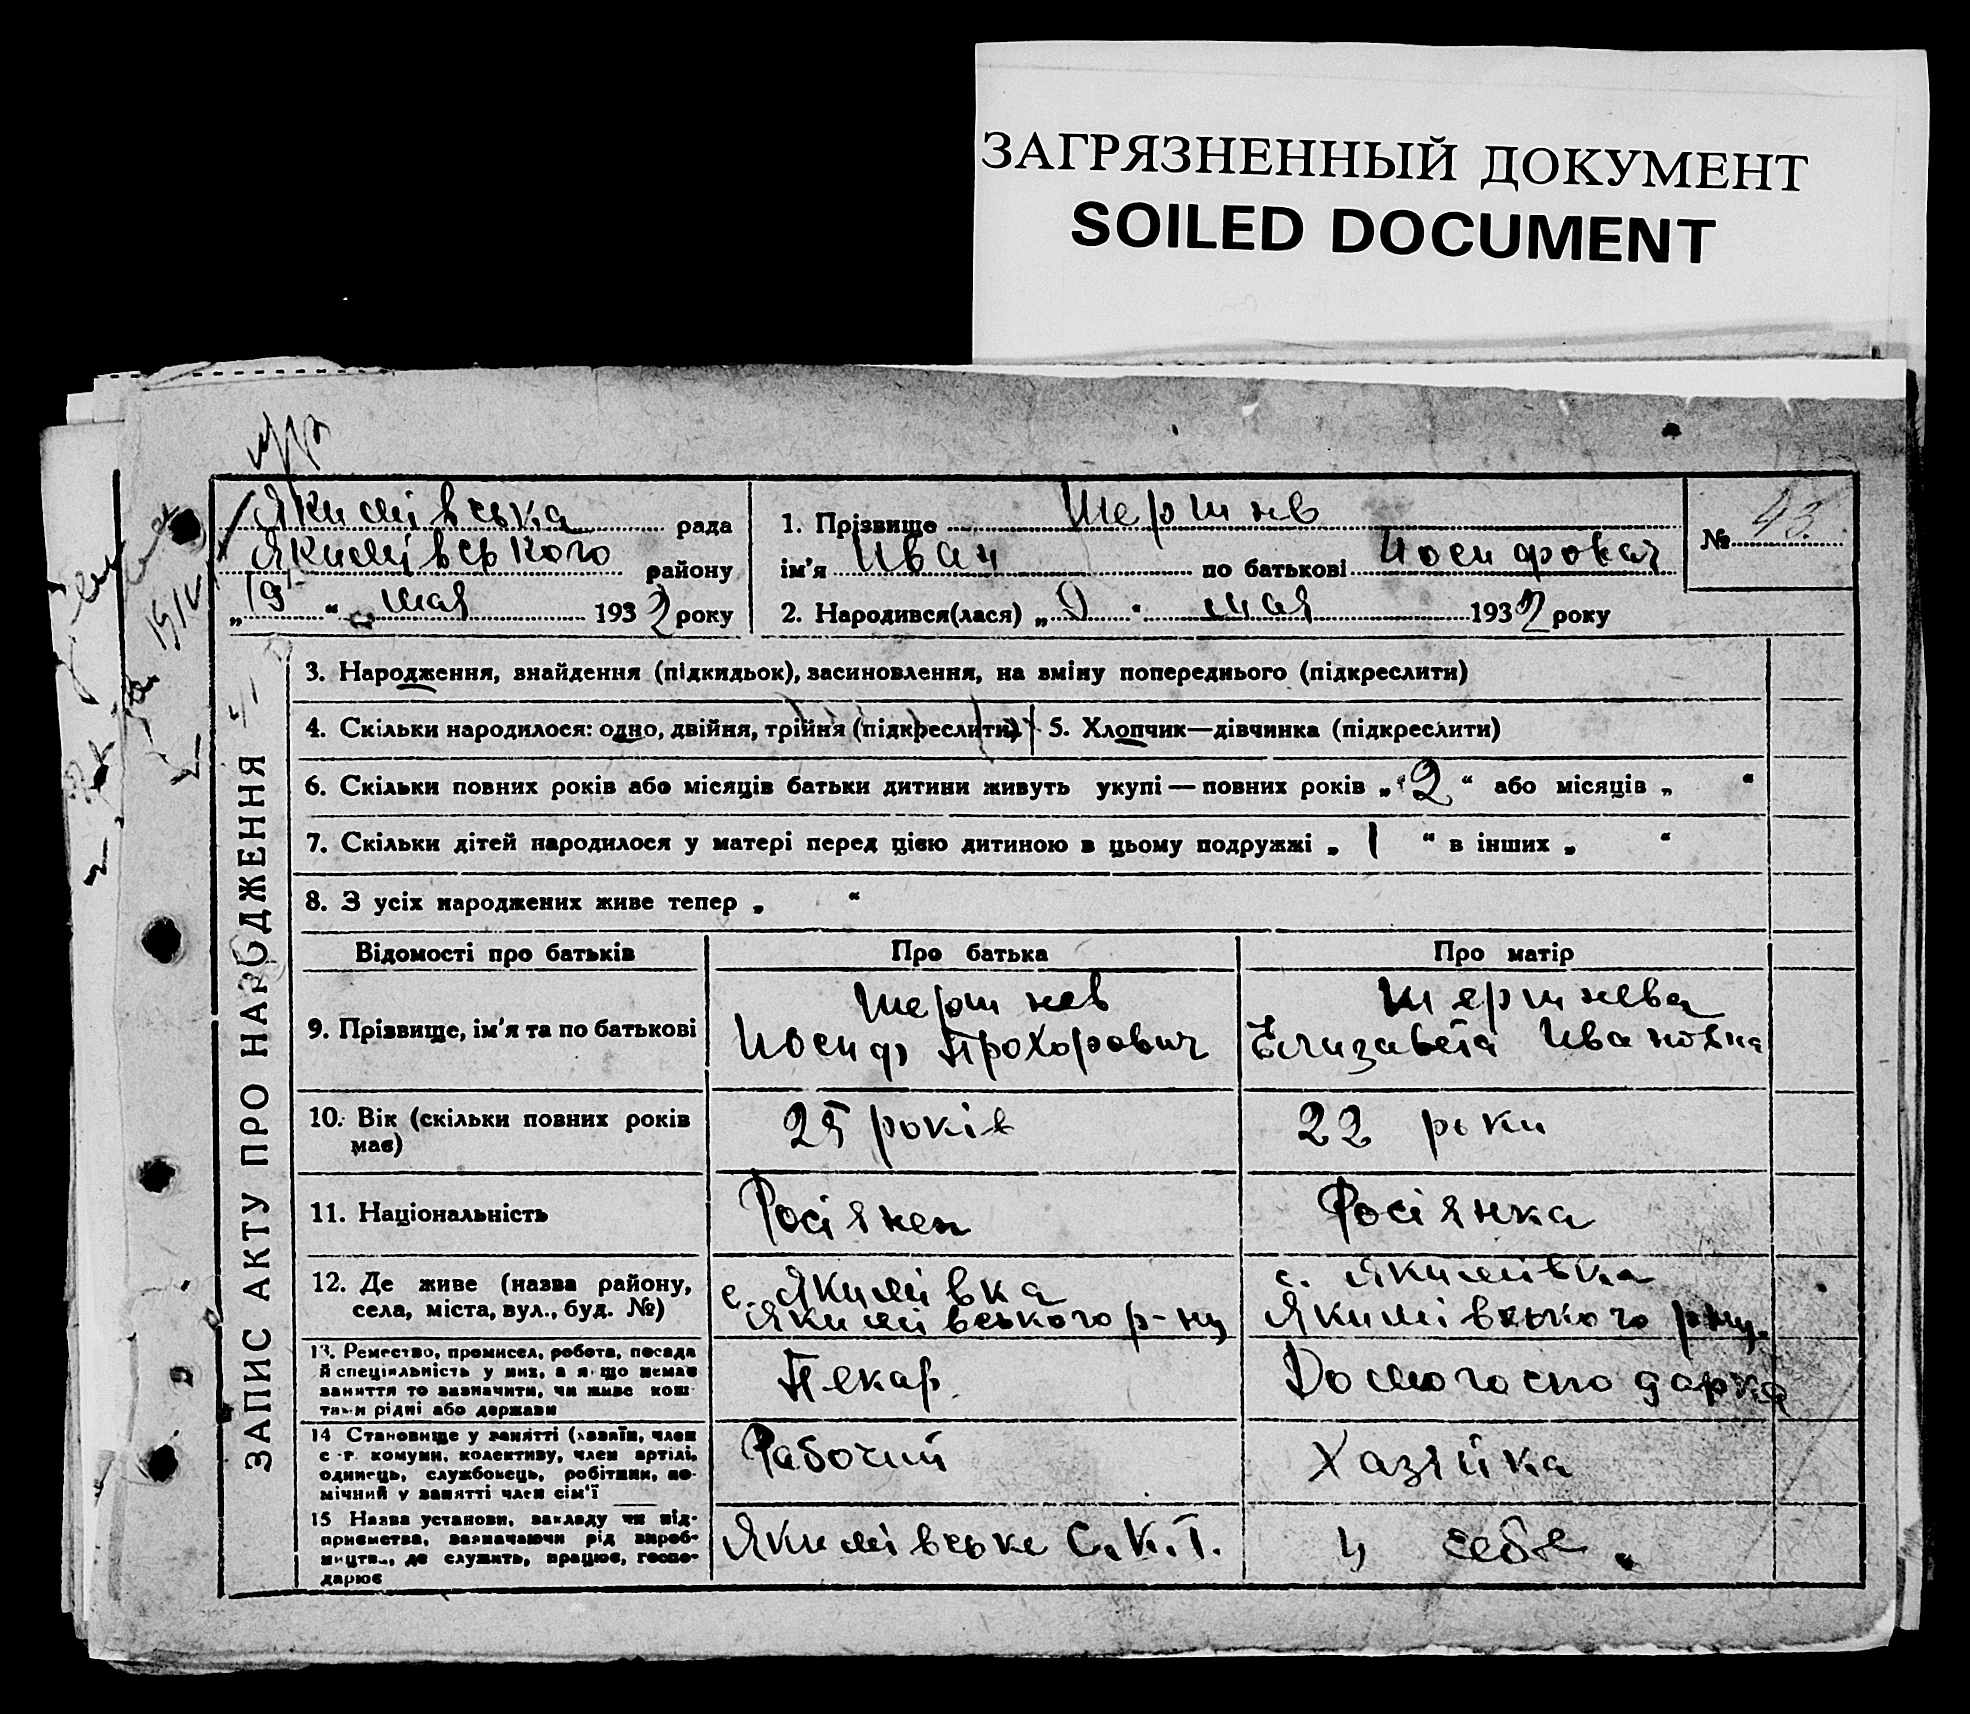 ЗАГРЯЗНЕННЫЙ ДОКУМЕНТ
SOILED DOCUMENT
Якимівська рада
Якимівського району
„19“ мая 1932 року
1. Прізвище Шершнев
ім'я Иван по батькові Иосифович
№ 43.
2. Народився(лася) „9“ мая 1932 року
ЗАПИС АКТУ ПРО НАРОДЖЕННЯ
3. Народження, знайдення (підкидьок), засиновлення, на зміну попереднього (підкреслити)
4. Скільки народилося: одно, двійня, трійня (підкреслити) 5. Хлопчик—дівчинка (підкреслити)
6. Скільки повних років або місяців батьки дитини живуть укупі — повних років „2“ або місяців „ “
7. Скільки дітей народилося у матері перед цією дитиною в цьому подружжі „ 1 “ в інших „ “
8. З усіх народжених живе тепер „ “
Відомості про батьків Про батька Про матір
9. Прізвище, ім'я та по батькові
Шершнев
Иосиф Прохорович
Шершнева
Елизавета Ивановна
10. Вік (скільки повних років має)
25 років
22 роки
11. Національність
Росіянен
Росіянка
12. Де живе (назва району, села, міста, вул., буд. №)
с. Якимівка
Якимівського р-ну
с. Якимівка
Якимівського р-ну.
13. Ремество, промисел, робота, посада
й спеціяльність у них, а якщо немає
заняття то зазначити, чи живе кош-
тами рідні або держави
Пекар
Домогосподарка
14 Становище у занятті (хазяїн, член
с.-г. комуни, колективу, член артілі,
одинець, службовець, робітник, по-
мічний у занятті член сім'ї
Рабочий
Хазяйка
15 Назва установи, закладу чи під-
приємства, зазначаючи рід вироб-
ництва, де служить, працює, госпо-
дарює
Якимівське С.К.Т.
у себе